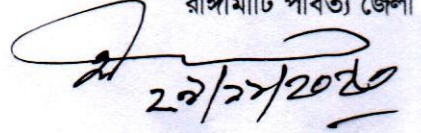 রাঙ্গামাটি পার্বত্য জেলা
২৯/১২/২০২০